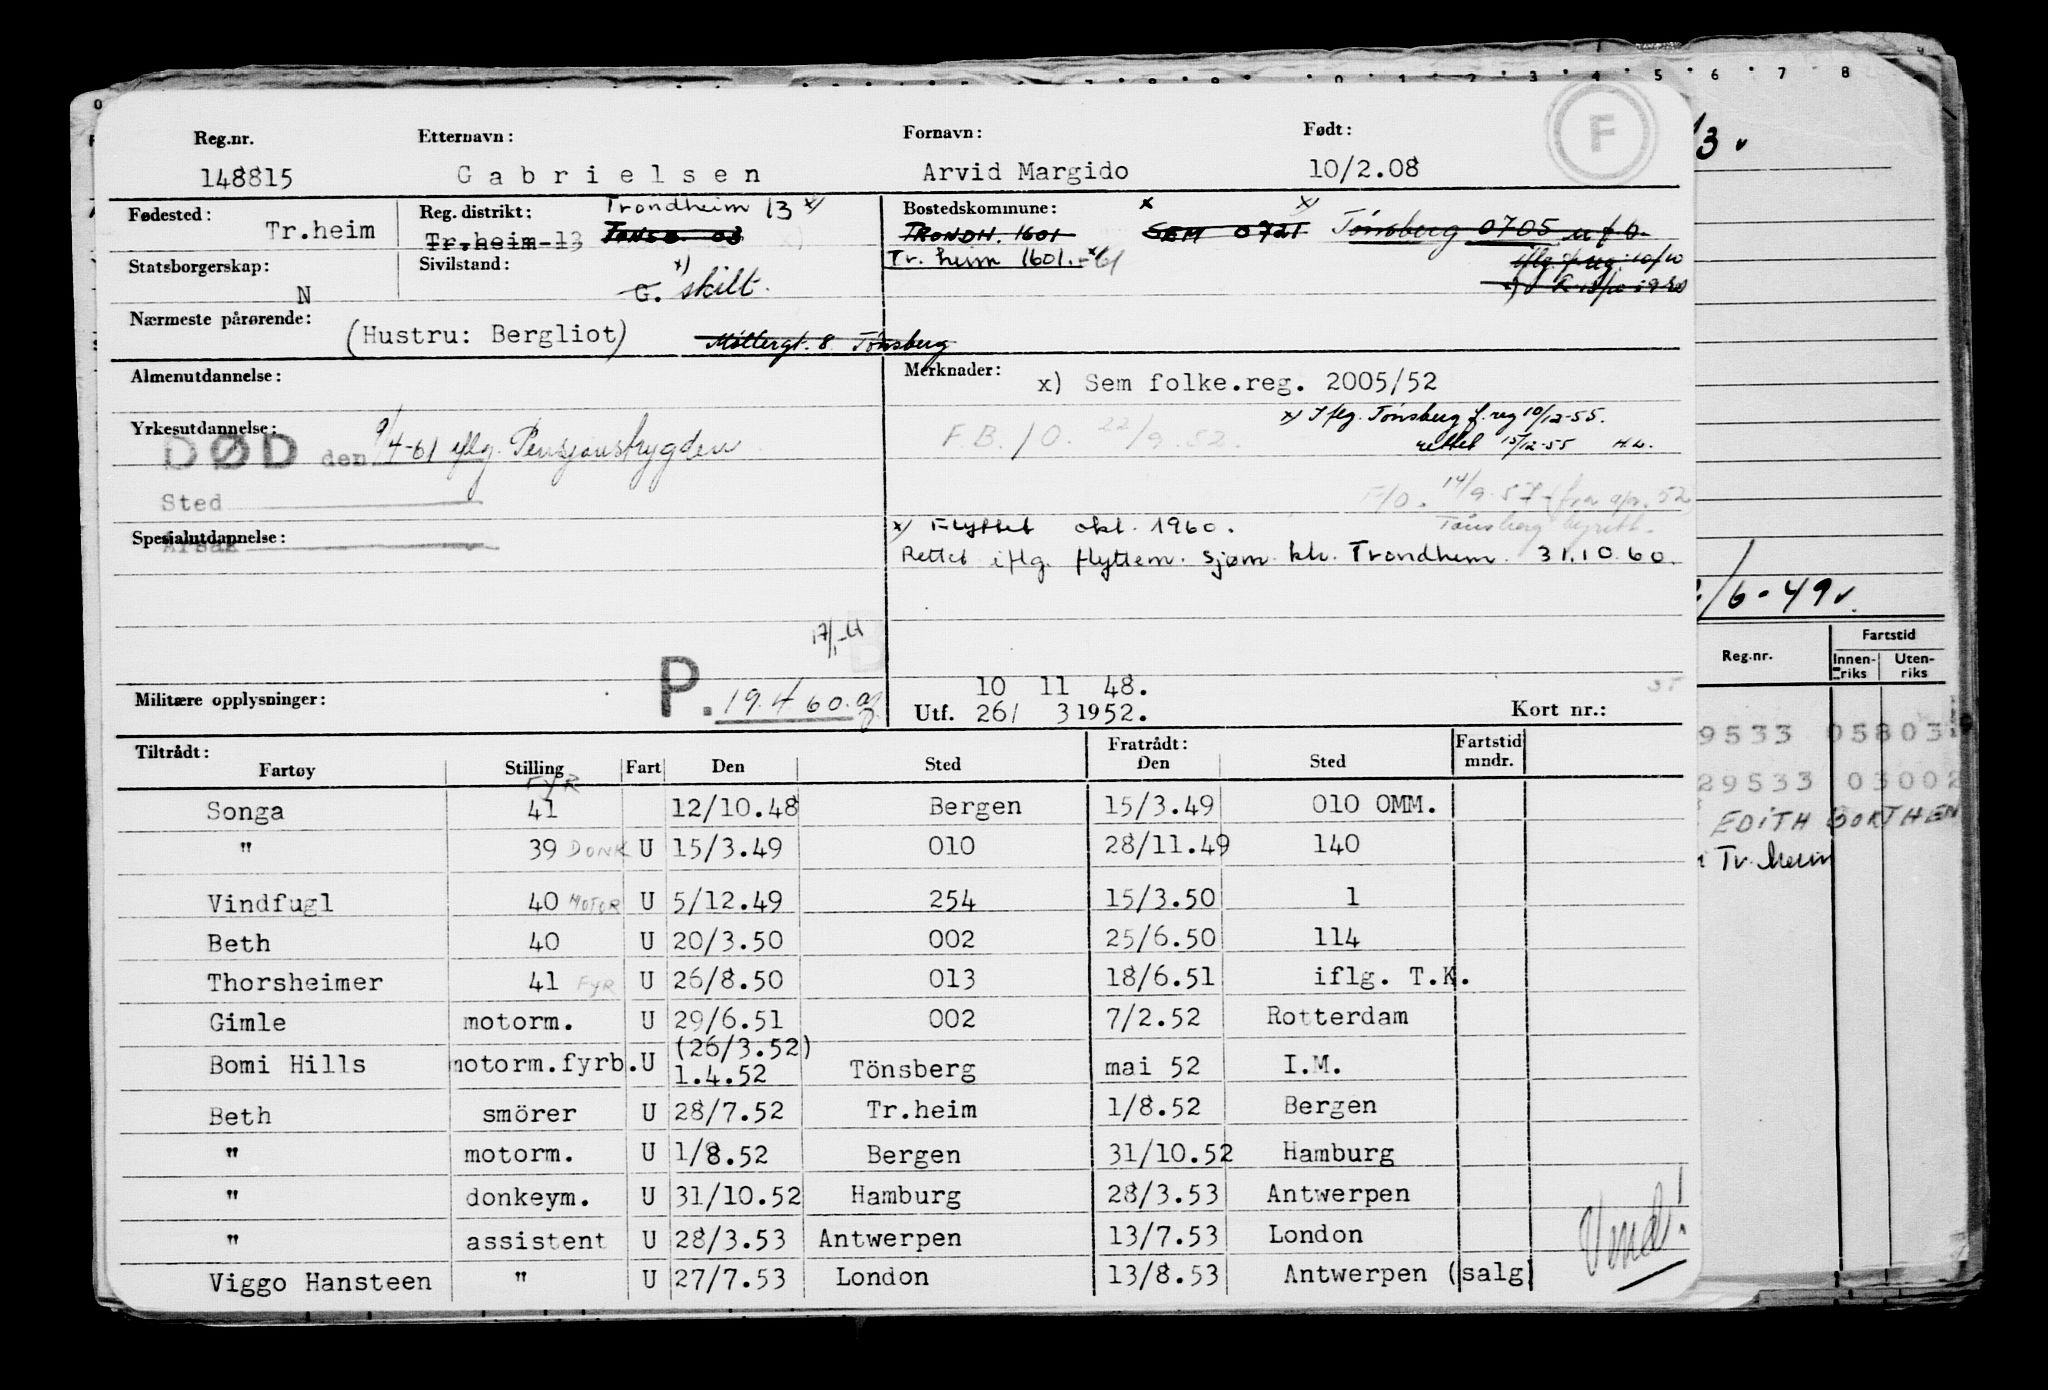 Reg.nr. Etternavn: Fornavn: Født: F
148815 Gabrielsen Arvid Margido 10/2.08
Fødested: Tr.heim Reg. distrikt: Trondheim 13 x) Tr.heim 13 TØNSB. 03
Bostedskommune: x x) TRONDH. 1601 SEM 0721 Tönsberg 0705 u f O.
Tr. heim 1601.
Statsborgerskap: N Sivilstand: x) G. skilt.
Nærmeste pårørende: (Hustru: Bergliot) Möllergt. 8 Tönsberg
Almenutdannelse: Merknader: x) Sem folke.reg. 2005/52
x) Iflg. Tönsberg f. reg 10/12-55.
Yrkesutdannelse: F.B./O. 22/9.52. rettet 15/12-55 H.W.
DØD den 9/4-61 iflg. Pensjonstrygden
Sted F/O. 14/9.57 fra apr. 52
Tönsberg
x) Flyttet okt. 1960.
Spesialutdannelse: Rettet iflg. flyttem. sjøm. ktr. Trondhem. 31.10.60.
Årsak
17/1-61 B
Militære opplysninger: P. 19.4 60. 10 11 48.
Utf. 26/ 3 1952. Kort nr.:
Tiltrådt: Fratrådt: Fartstid
Fartøy Stilling Fart Den Sted Den Sted mndr.
FYR
Songa 41 12/10.48 Bergen 15/3.49 010 OMM.
" 39 DONK U 15/3.49 010 28/11.49 140
Vindfugl 40 MOTOR U 5/12.49 254 15/3.50 1
Beth 40 U 20/3.50 002 25/6.50 114
Thorsheimer 41 FYR U 26/8.50 013 18/6.51 iflg. T.K.
Gimle motorm. U 29/6.51 002 7/2.52 Rotterdam
(26/3.52)
Bomi Hills motorm.fyrb. U 1.4.52 Tönsberg mai 52 I.M.
Beth smörer U 28/7.52 Tr.heim 1/8.52 Bergen
" motorm. U 1/8.52 Bergen 31/10.52 Hamburg
" donkeym. U 31/10.52 Hamburg 28/3.53 Antwerpen
" assistent U 28/3.53 Antwerpen 13/7.53 London
Viggo Hansteen " U 27/7.53 London 13/8.53 Antwerpen (salg)
Vend!
/3 v
/6-49 v.
Fartstid
Reg.nr. Innen-riks Uten-riks
9533 05803
29533 03002
EDITH BORTHEN
Tr. heim